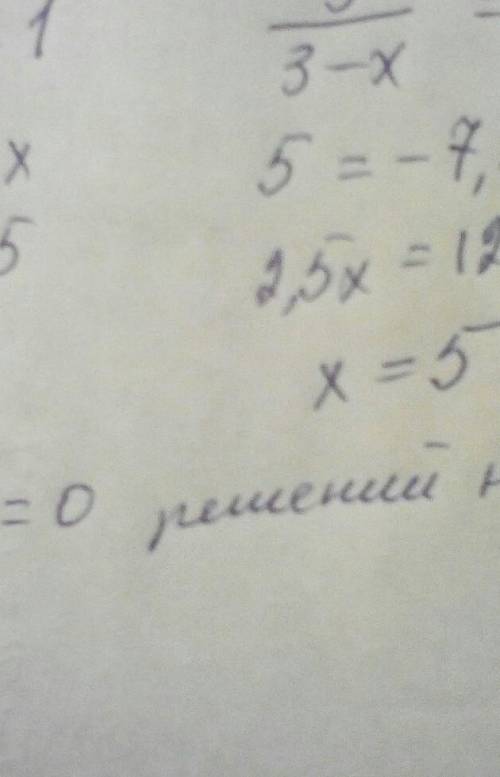 1
3-x
x
5 = -7,
5
2,5x = 12
x = 5
= 0 решений